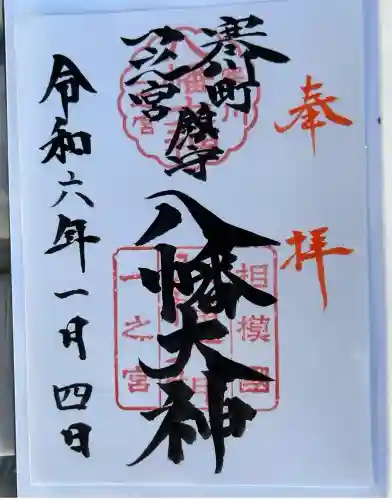 奉拝
寒川町
一之宮
鎮守
八幡大神
相模国
一之宮
令和六年一月四日